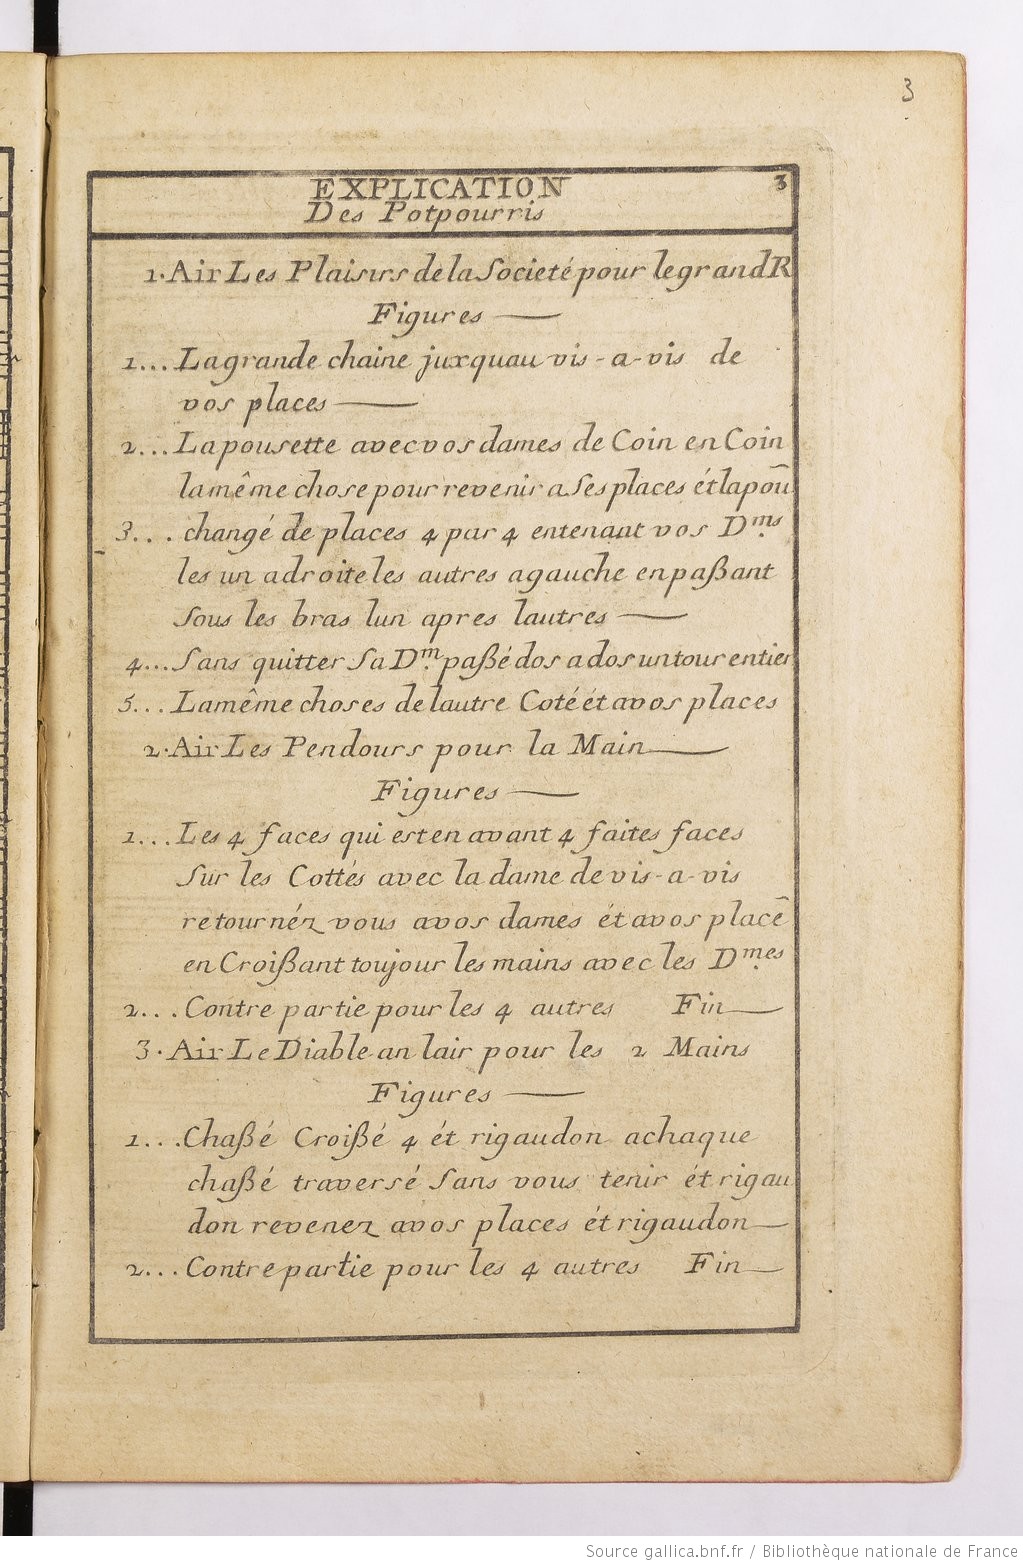 3
EXPLICATION 3
Des Potpourris
1. Air Les Plaisirs de la Societé pour le grand R
Figures —
1... La grande chaine juxquau vis-a-vis de
vos places —
2... La pousette avec vos dames de Coin en Coin
la même chose pour revenir a Ses places ét la poū
3... changé de places 4 par 4 en tenant vos Dms
les un a droite les autres a gauche en paßant
Sous les bras lun apres lautres —
4... Sans quitter Sa Dm. paßé dos a dos un tour entier
5... La même choses de lautre Coté ét a vos places
2. Air Les Pendours pour la Main —
Figures —
1... Les 4 faces qui est en avant 4 faites faces
Sur les Cottés avec la dame de vis-a-vis
retournéz vous a vos dames ét a vos placē
en Croißant toujour les mains avec les Dmes
2... Contre partie pour les 4 autres Fin —
3. Air Le Diable an lair pour les 2 Mains
Figures —
1... Chaßé Croißé 4 ét rigaudon a chaque
chaßé traversé Sans vous tenir ét rigau
don revenez a vos places ét rigaudon —
2... Contre partie pour les 4 autres Fin —
Source gallica.bnf.fr / Bibliothèque nationale de France